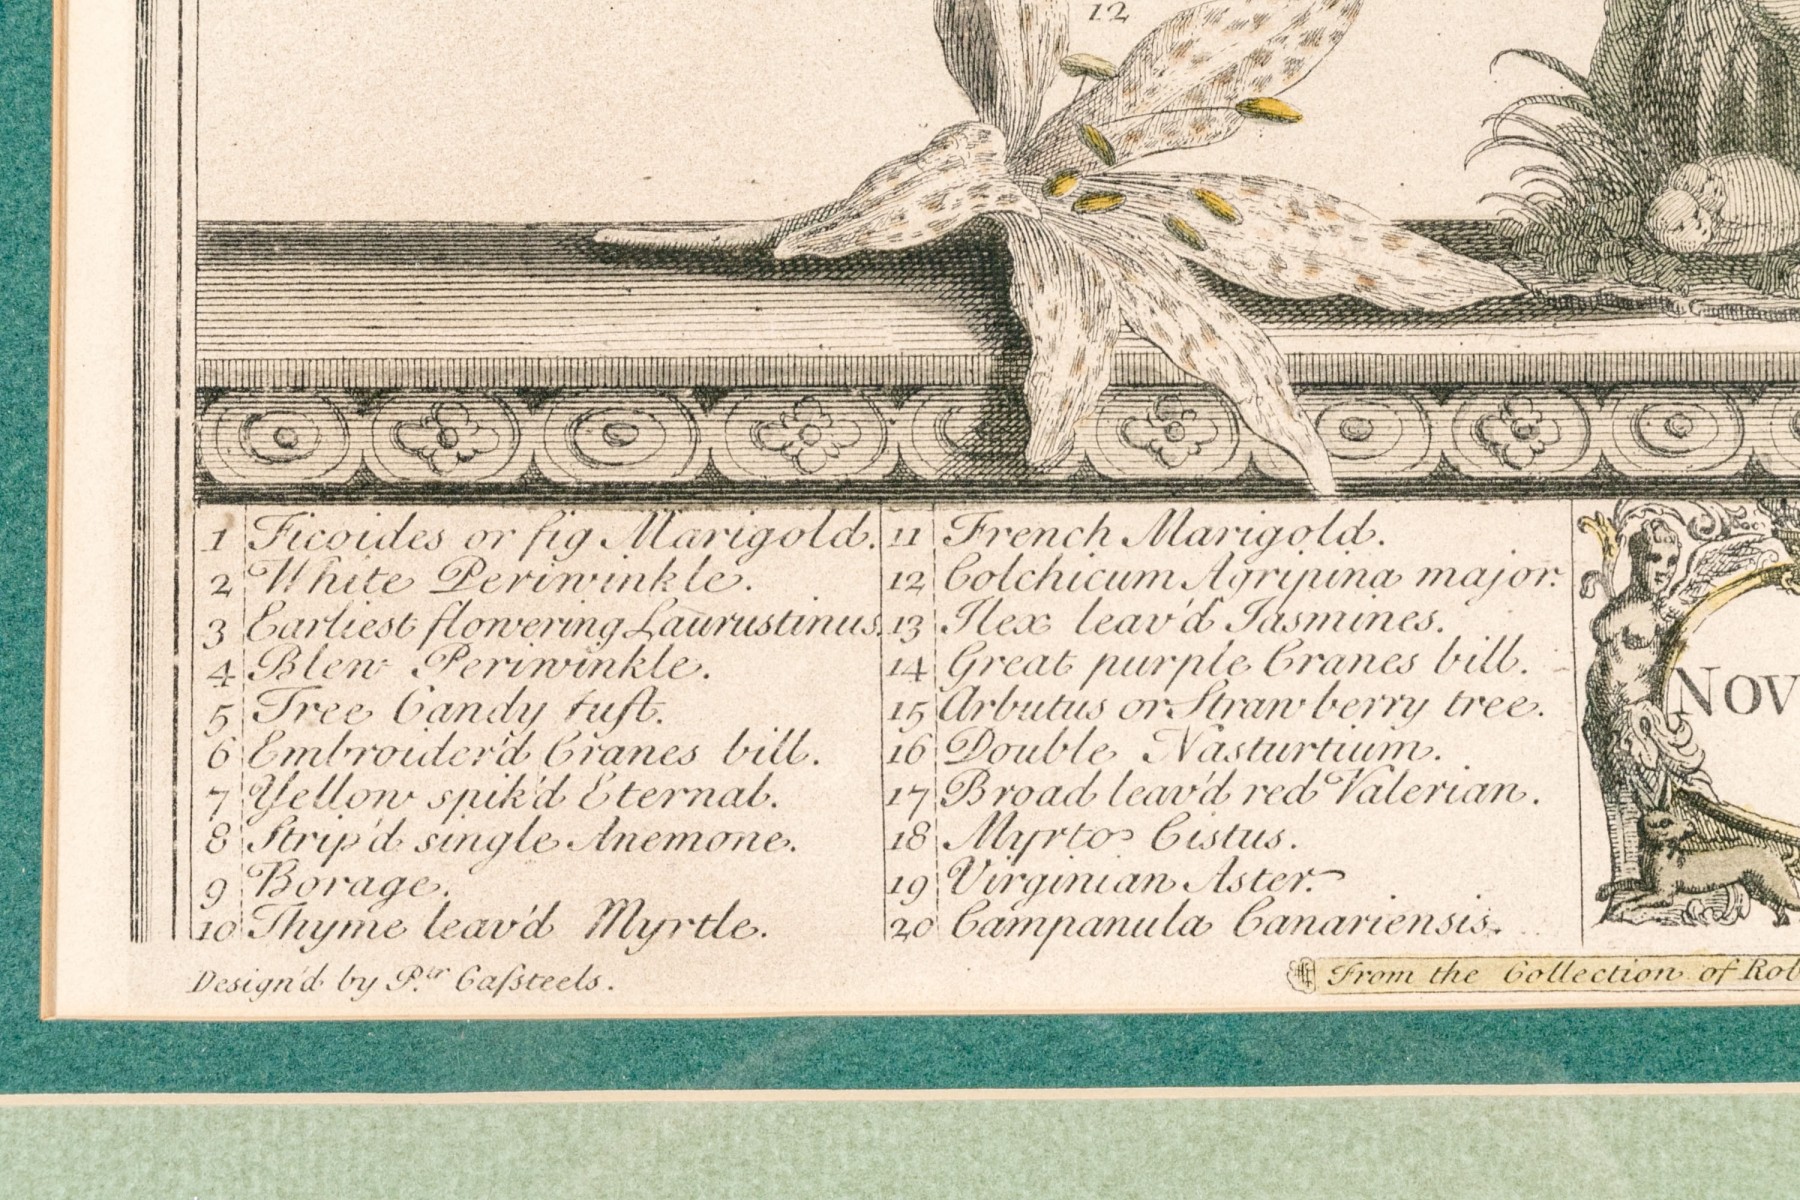 12
1 Ficoides or fig Marigold.
2 White Periwinkle.
3 Earliest flowering Laurustinus.
4 Blew Periwinkle.
5 Tree Candy tuft.
6 Embroider'd Cranes bill.
7 Yellow spik'd Eternal.
8 Strip'd single Anemone.
9 Borage.
10 Thyme leav'd Myrtle.
11 French Marigold.
12 Colchicum Agripina major.
13 Ilex leav'd Jasmines.
14 Great purple Cranes bill.
15 Arbutus or Strawberry tree.
16 Double Nasturtium.
17 Broad leav'd red Valerian.
18 Myrto Cistus.
19 Virginian Aster.
20 Campanula Canariensis.
NOV
Design'd by P.ter Caſsteels.
From the Collection of Rob